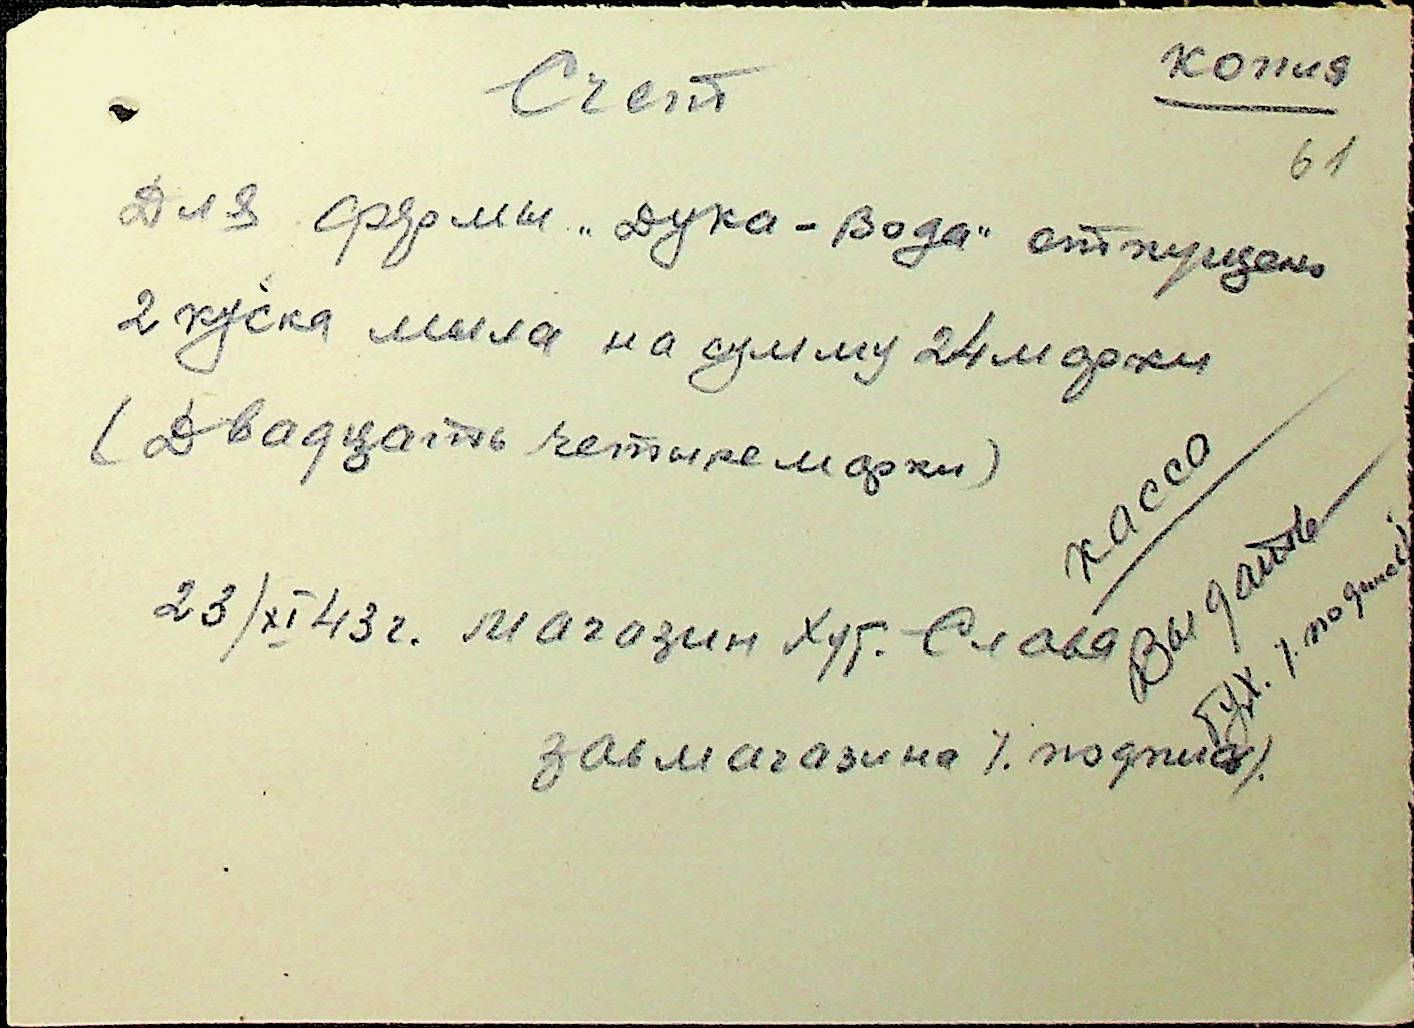 копия
Счет
61
Для фермы „Дука-Вода" отпущено
2 куска мыла на сумму 24 марки
(Двадцать четыре марки)
касса
Выдать
Бух. /. подпись/
23/XI 43 г. магазин Хут. Слава
завмагазина /. подпись/.